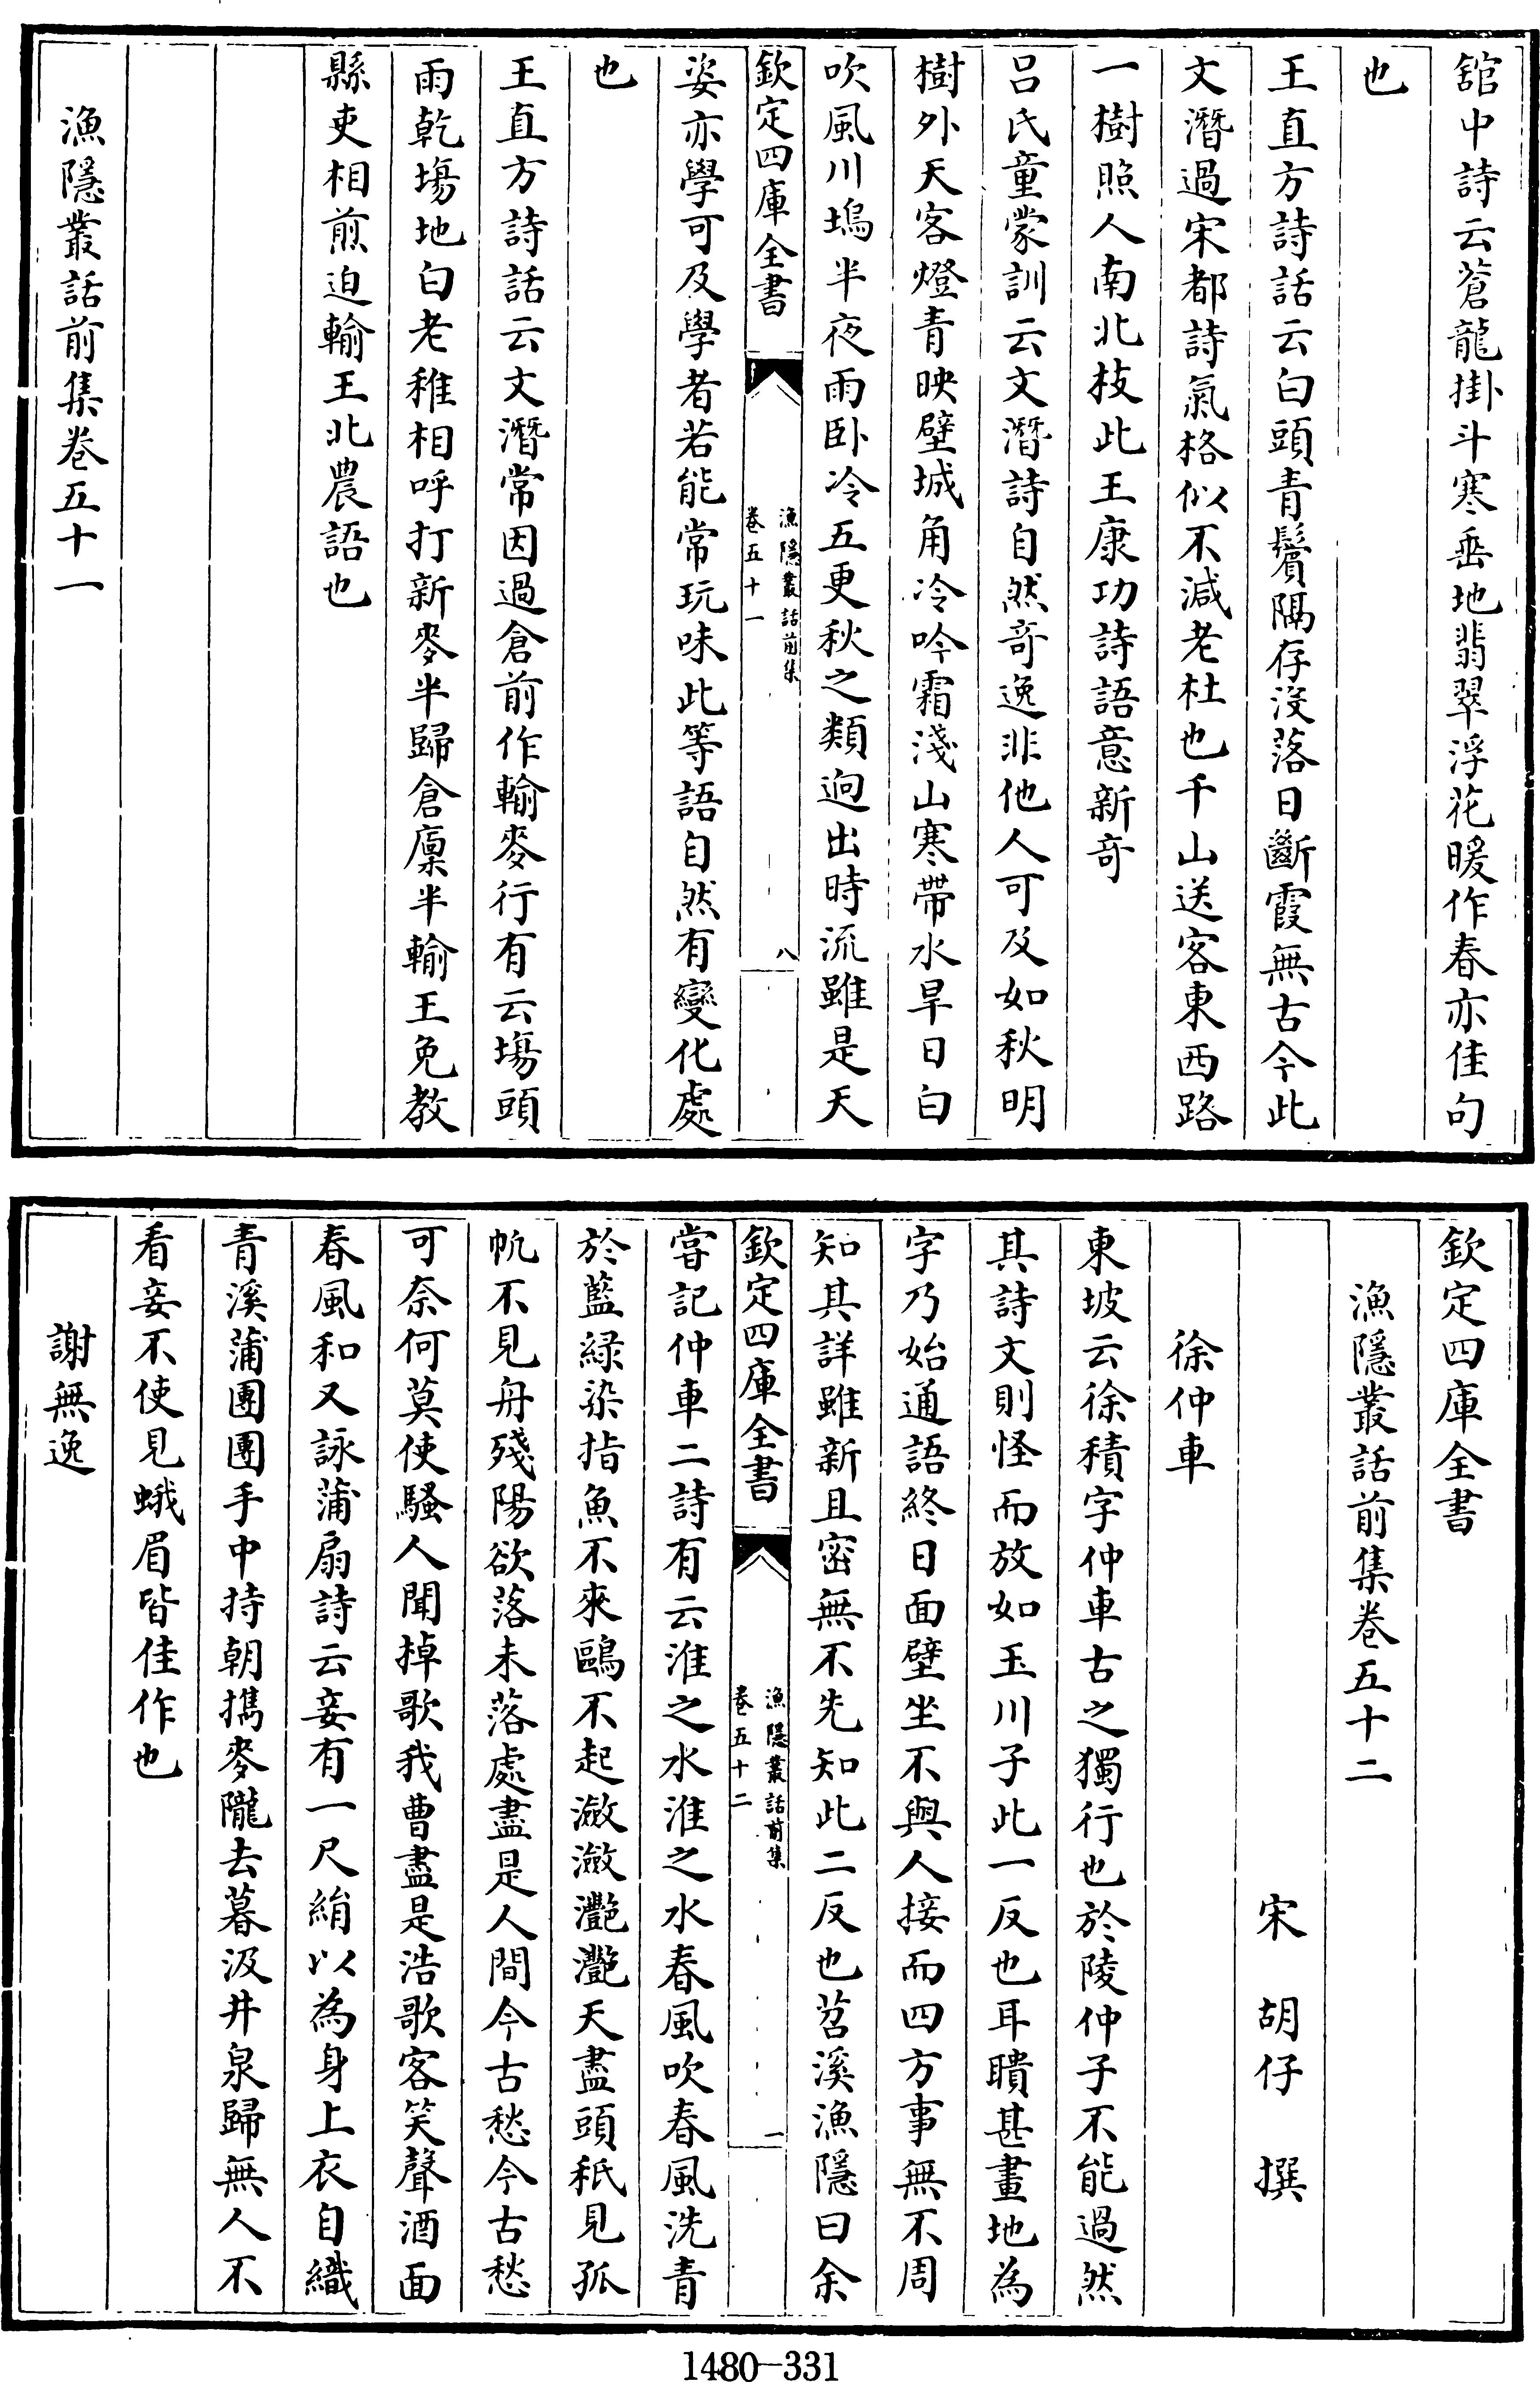 舘中詩云蒼龍掛斗寒垂地翡翠浮花暖作春亦佳句
也
王直方詩話云白頭青鬢隔存沒落日斷霞無古今此
文潛過宋都詩氣格似不減老杜也千山送客東西路
一樹照人南北枝此王康功詩語意新奇
呂氏童蒙訓云文潛詩自然奇逸非他人可及如秋明
樹外天客燈青映壁城角冷吟霜淺山寒帶水旱日白
吹風川塢半夜雨卧冷五更秋之類迥出時流雖是天
欽定四庫全書
漁隱叢話前集
卷五十一
八
姿亦學可及學者若能常玩味此等語自然有變化處
也
王直方詩話云文潛常因過倉前作輸麥行有云塲頭
雨乾塲地白老稚相呼打新麥半歸倉廩半輸王免教
縣吏相煎迫輸王北農語也
漁隱叢話前集卷五十一
欽定四庫全書
漁隱叢話前集卷五十二
宋 胡仔 撰
徐仲車
東坡云徐積字仲車古之獨行也於陵仲子不能過然
其詩文則怪而放如玉川子此一反也耳聵甚畫地為
字乃始通語終日面壁坐不與人接而四方事無不周
知其詳雖新且密無不先知此二反也苕溪漁隱曰余
欽定四庫全書
漁隱叢話前集
卷五十二
一
嘗記仲車二詩有云淮之水淮之水春風吹春風洗青
於藍緑染指魚不來鷗不起瀲瀲灔灔天盡頭秖見孤
帆不見舟殘陽欲落未落處盡是人間今古愁今古愁
可奈何莫使騷人聞掉歌我曹盡是浩歌客笑聲酒面
春風和又詠蒲扇詩云妾有一尺絹以為身上衣自織
青溪蒲團團手中持朝擕麥隴去暮汲井泉歸無人不
看妾不使見蛾眉皆佳作也
謝無逸
1480—331